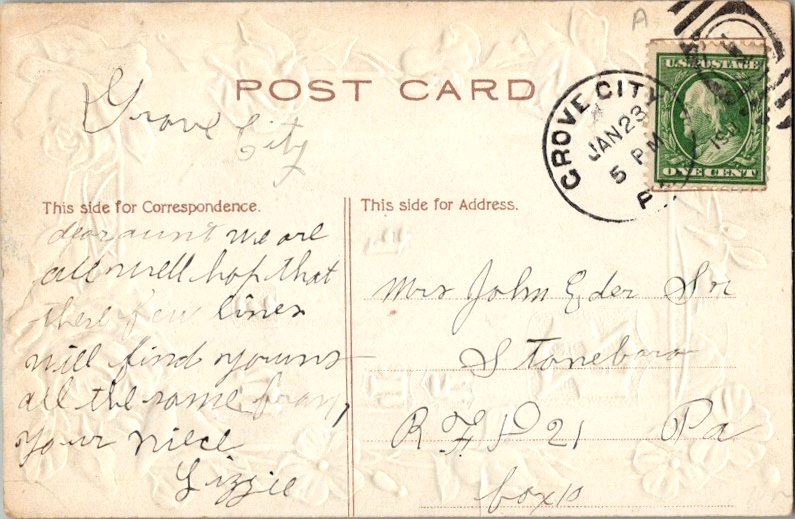 A
POST CARD
Grove City
GROVE CITY
JAN 23
5 PM
PA
U.S. POSTAGE
ONE CENT
This side for Correspondence.
dear aunt we are
all well hop that
these few lines
will find youns
all the same from
your niece
Lizzie
This side for Address.
Mrs John Eder Sr
Stoneboro
RFD 21 Pa
box 10